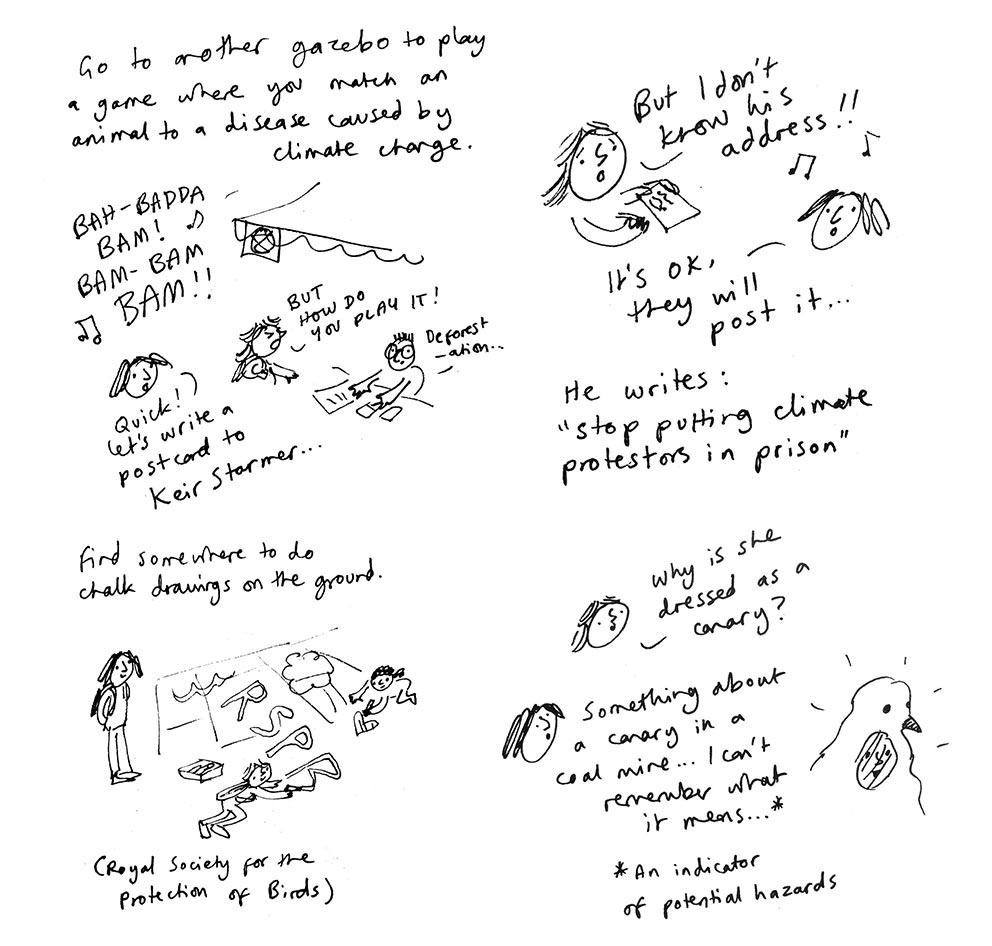 Go to another gazebo to play
a game where you match an
animal to a disease caused by
climate change.
BAH-BADDA
BAM!
BAM-BAM
BAM!!
BUT
HOW DO
YOU PLAY IT!
Deforest
-ation...
Quick!
Let's write a
postcard to
Keir Starmer...
But I don't
know his
address!!
It's OK,
they will
post it...
He writes:
"stop putting climate
protestors in prison"
Find somewhere to do
chalk drawings on the ground.
RSPB
(Royal Society for the
Protection of Birds)
Why is she
dressed as a
canary?
Something about
a canary in a
coal mine... I can't
remember what
it means...*
*An indicator
of potential hazards